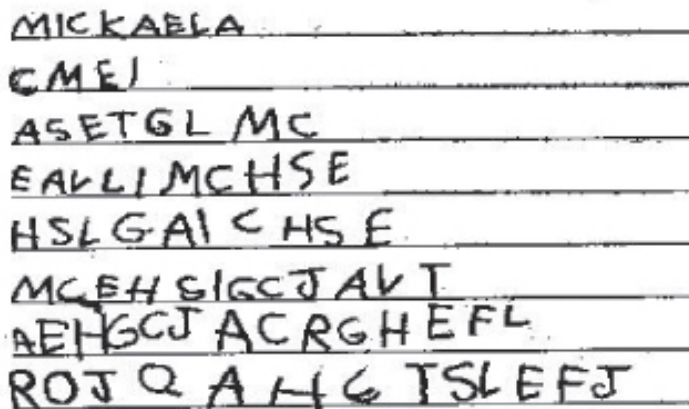 MICKAELA
CMEI
ASETGL MC
EAVLIMCHSE
HSLGAI CHSE
MCEHSIGCJAVT
AEHGCJ ACRGHEFL
ROJQAHGTSLEFJ